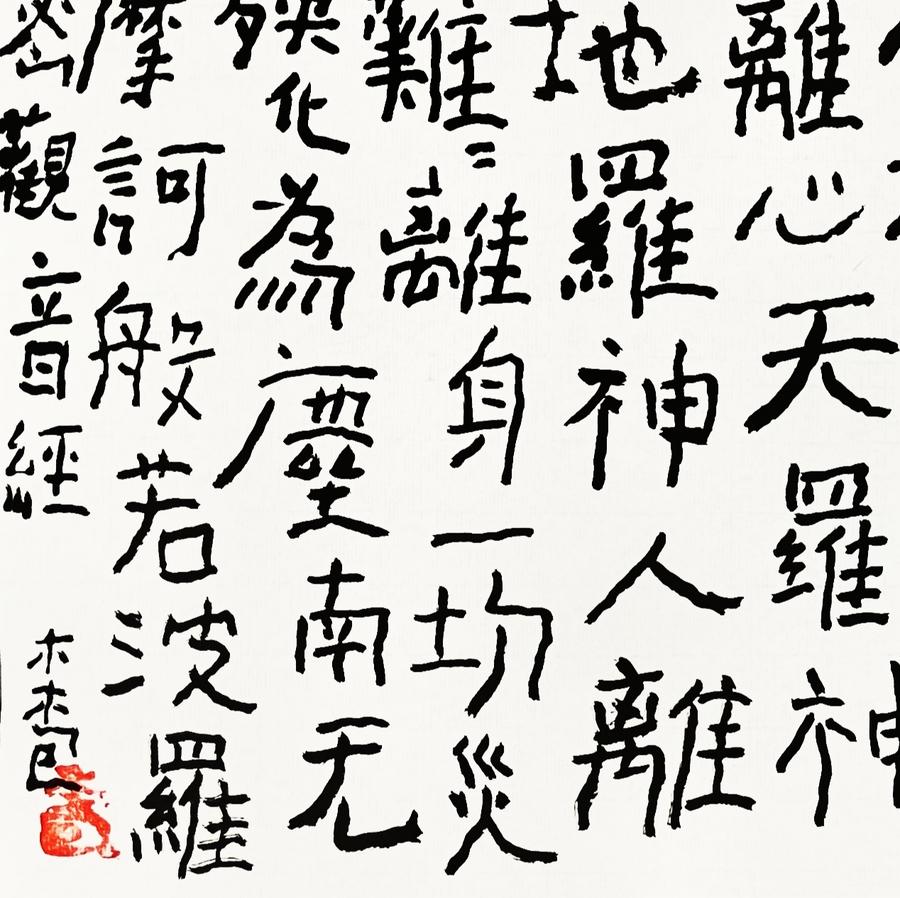 離心天羅神
地羅神人離
難〻離身一切災
殃化為塵南无
摩訶般若波羅
密觀音經